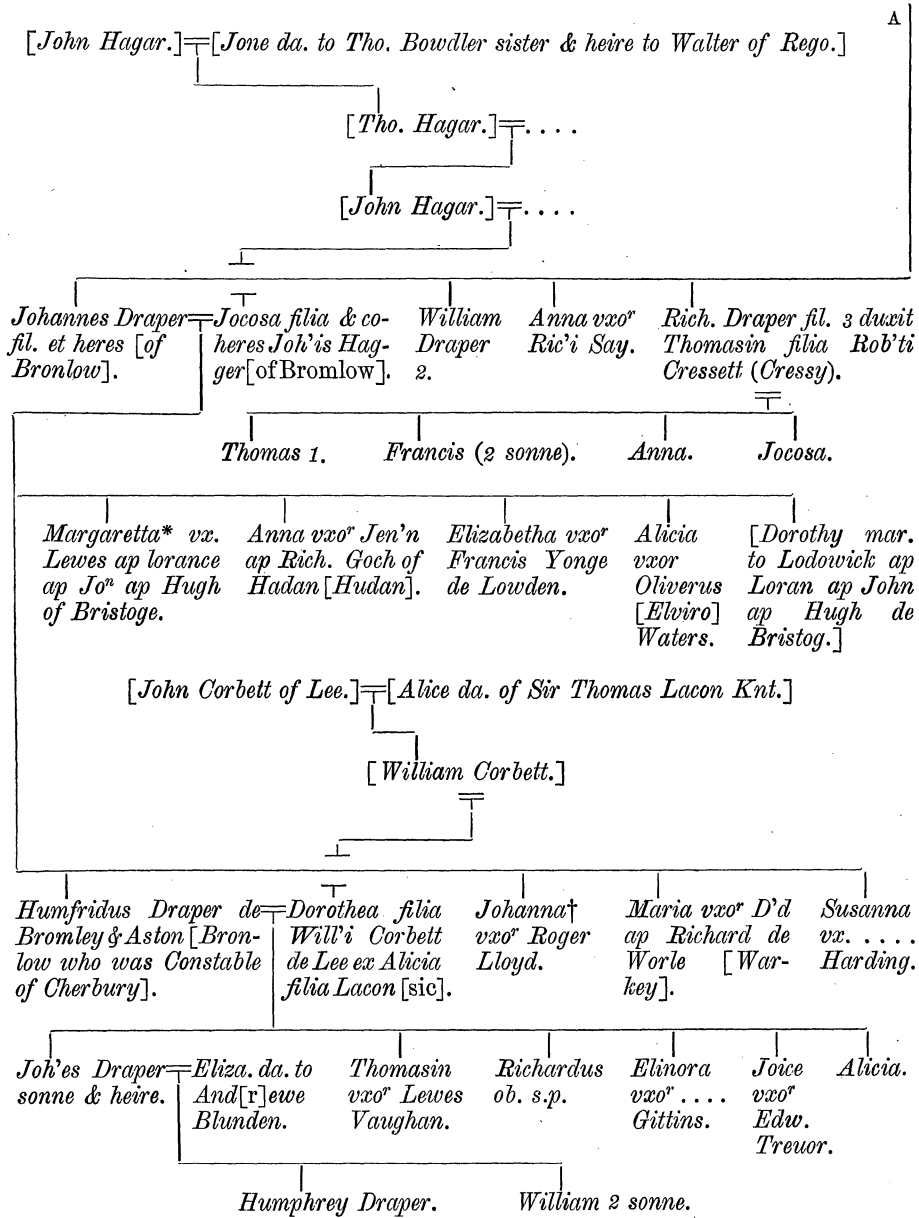 A
[John Hagar.]=[Jone da. to Tho. Bowdler sister & heire to Walter of Rego.]
[Tho. Hagar.]=. . . .
[John Hagar.]=. . . .
Johannes Draper=
fil. et heres [of
Bronlow].
Jocosa filia & co-
heres Joh'is Hag-
ger [of Bromlow].
William
Draper
2.
Anna vxoʳ
Ric'i Say.
Rich. Draper fil. 3 duxit
Thomasin filia Rob'ti
Cressett (Cressy).
Thomas 1.
Francis (2 sonne).
Anna.
Jocosa.
Margaretta* vx.
Lewes ap lorance
ap Joⁿ ap Hugh
of Bristoge.
Anna vxoʳ Jen'n
ap Rich. Goch of
Hadan [Hudan].
Elizabetha vxoʳ
Francis Yonge
de Lowden.
Alicia
vxor
Oliverus
[Elviro]
Waters.
[Dorothy mar.
to Lodowick ap
Loran ap John
ap Hugh de
Bristog.]
[John Corbett of Lee.]=[Alice da. of Sir Thomas Lacon Knt.]
[William Corbett.]
Humfridus Draper de=
Bromley & Aston [Bron-
low who was Constable
of Cherbury].
Dorothea filia
Will'i Corbett
de Lee ex Alicia
filia Lacon [sic].
Johanna†
vxoʳ Roger
Lloyd.
Maria vxoʳ D'd
ap Richard de
Worle [War-
key].
Susanna
vx. . . . .
Harding.
Joh'es Draper=
sonne & heire.
Eliza. da. to
And[r]ewe
Blunden.
Thomasin
vxoʳ Lewes
Vaughan.
Richardus
ob. s.p.
Elinora
vxoʳ . . . .
Gittins.
Joice
vxoʳ
Edw.
Treuor.
Alicia.
Humphrey Draper.
William 2 sonne.